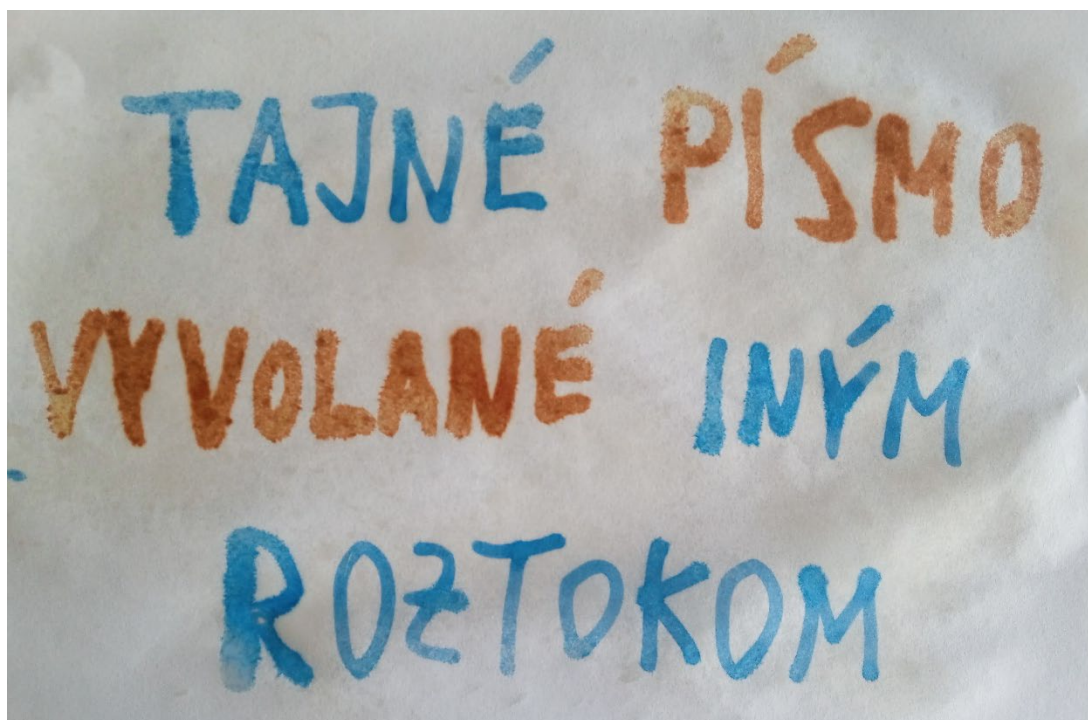 TAJNÉ PÍSMO
VYVOLANÉ INÝM
ROZTOKOM